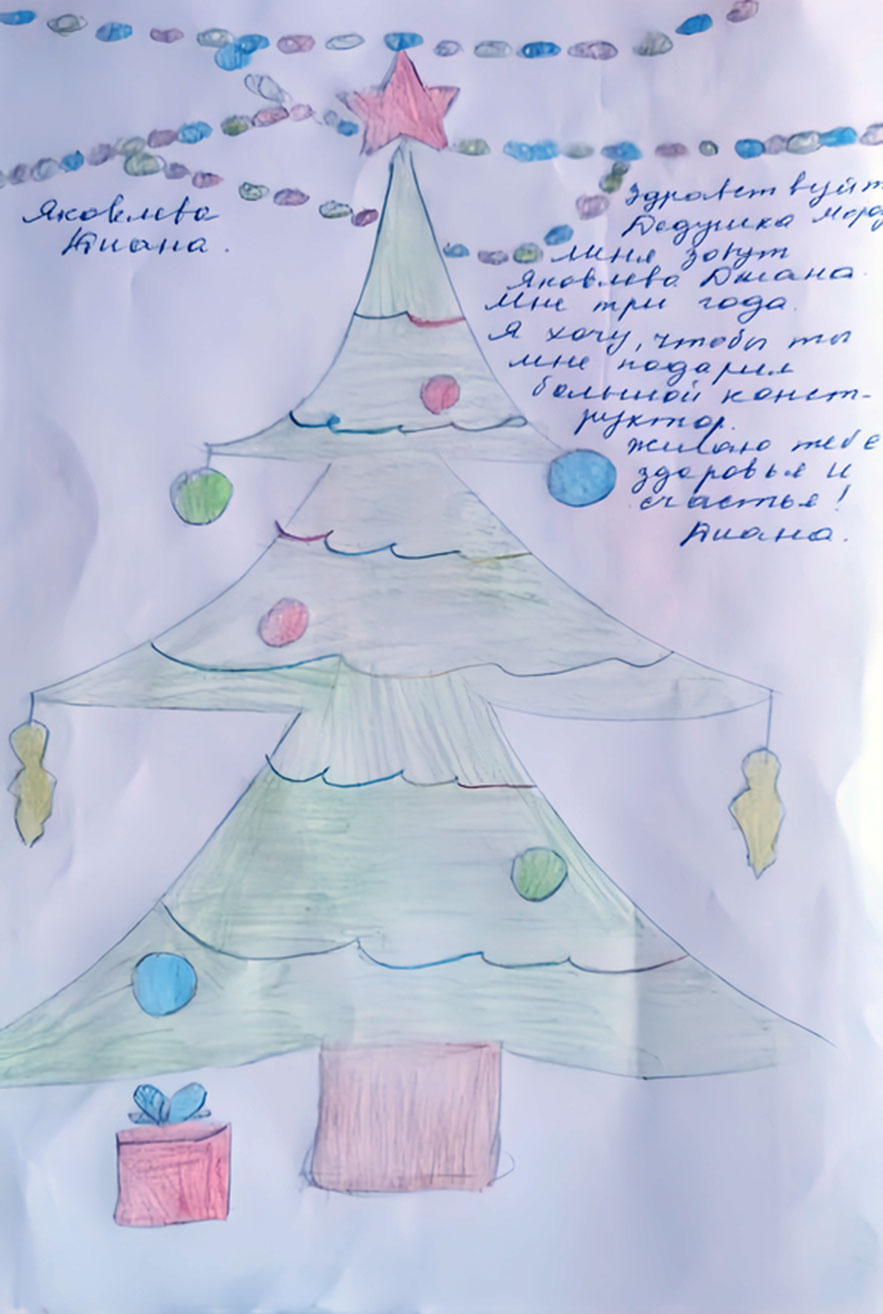 Яковлева
Диана.
Здравствуйт
Дедушка Мороз
меня зовут
Яковлева Диана.
Мне три года.
Я хочу, чтобы ты
мне подарил
большой конст-
руктор.
желаю тебе
здоровья и
счастья!
Диана.